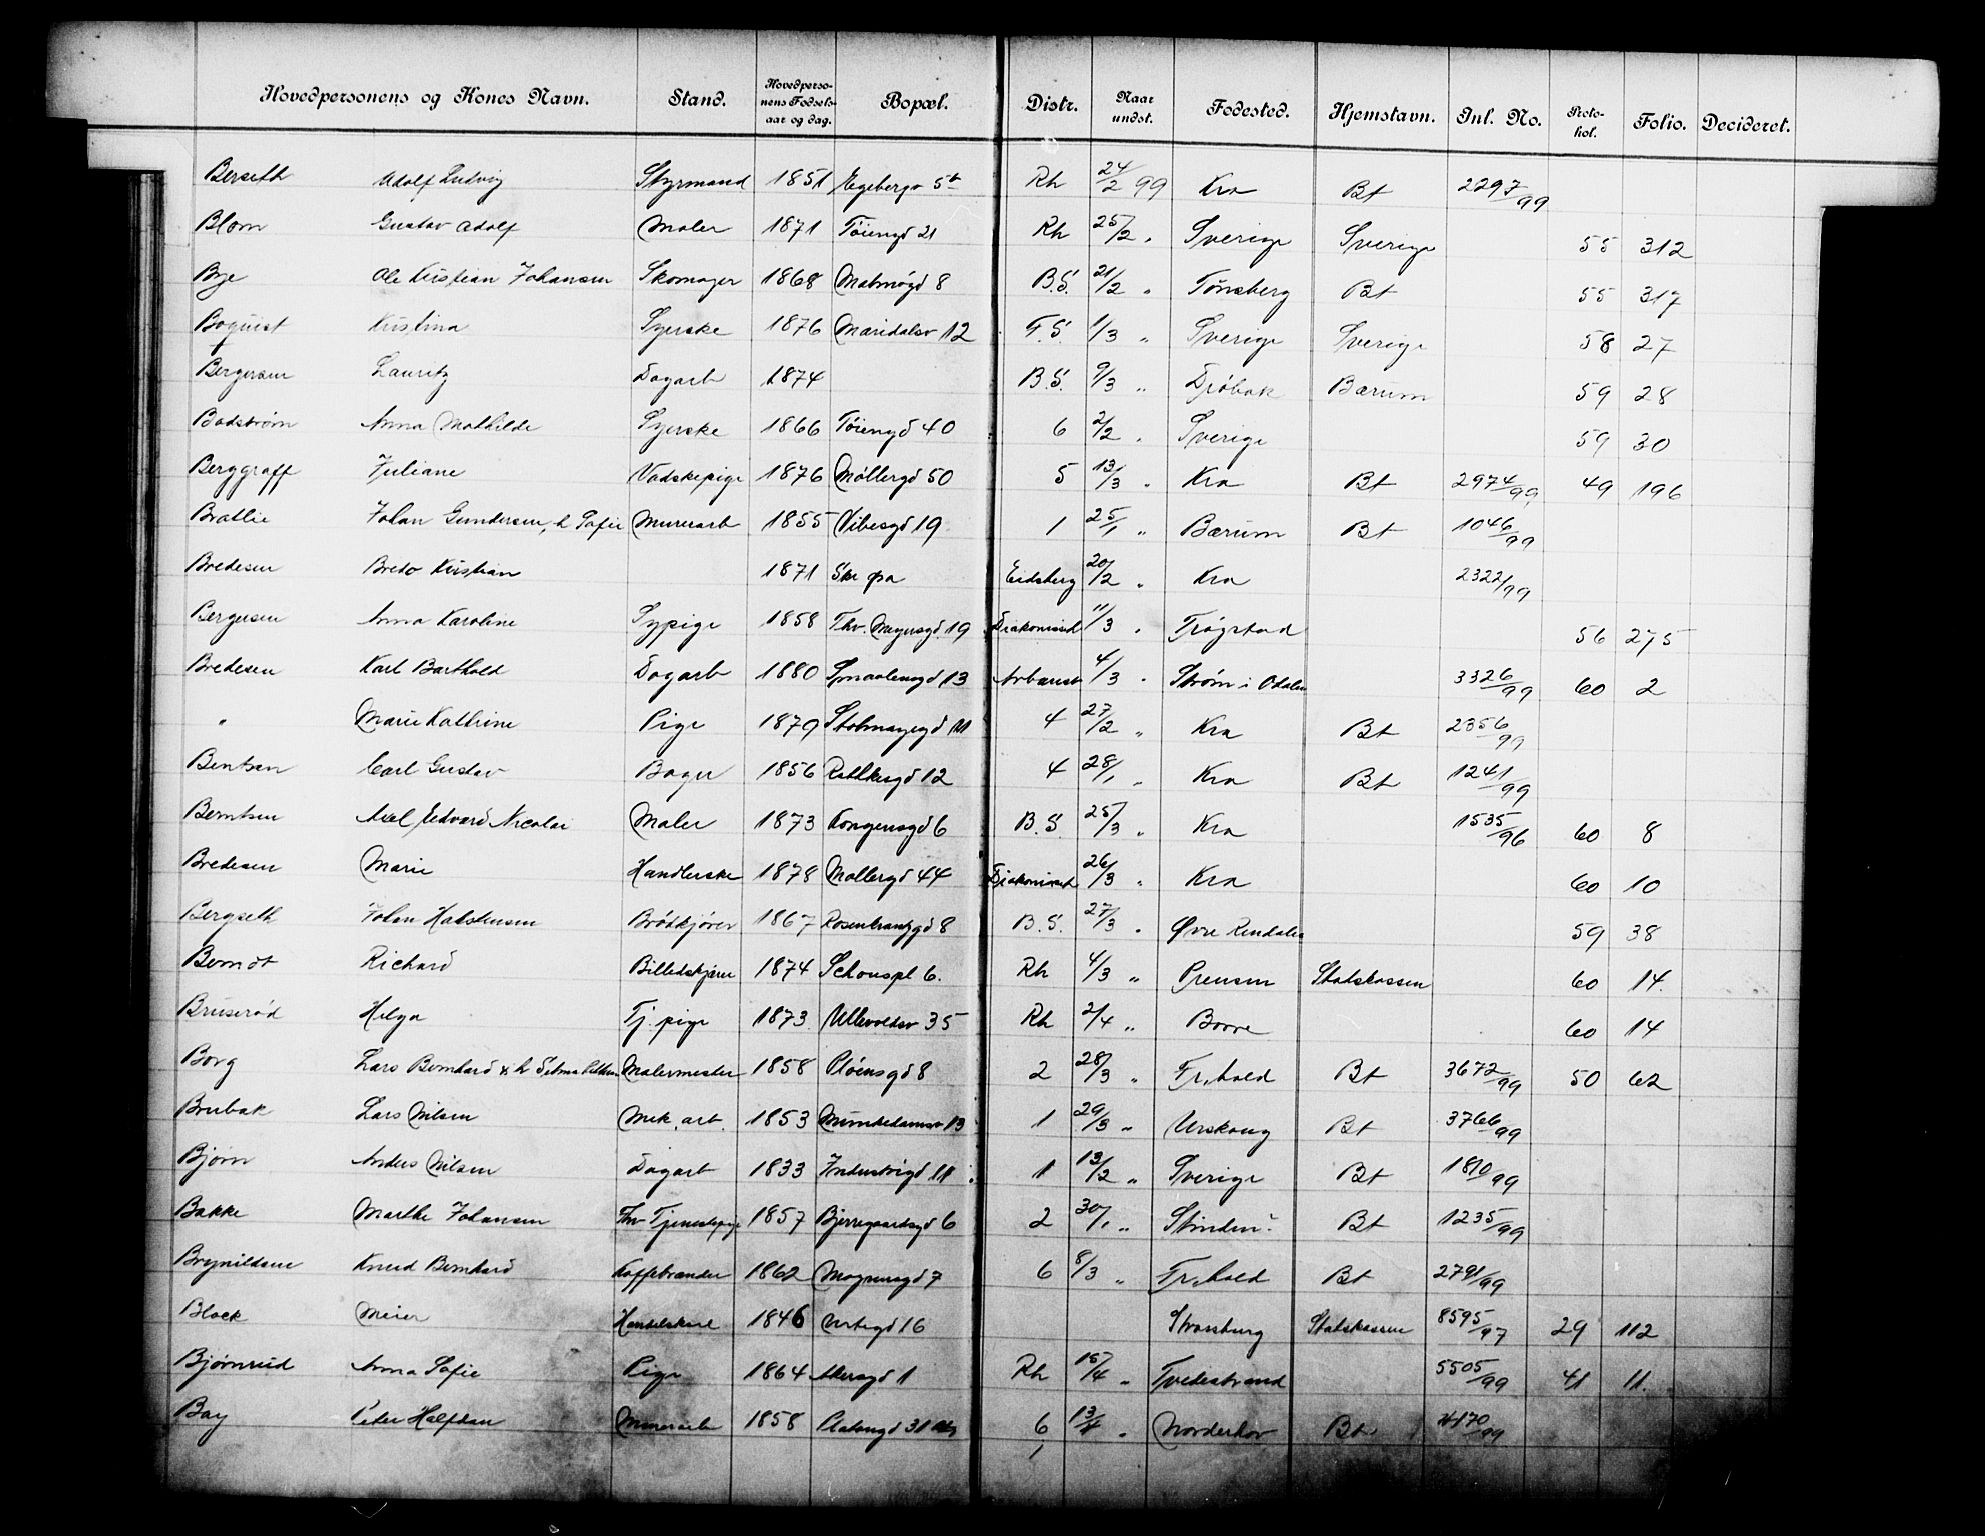 Hovedpersonens og Kones Navn. Stand. Hovedpersonens Fødselsaar og dag. Bopæl. Distr. Naar undst. Fødested. Hjemstavn. Inl. No. Protokol. Folio. Decideret.
Berseth Adolf Ludvig Styrmand 1851 Egebergv 5b Rh 24/2 99 Kra Bt 2297/99
Blom Gustav Adolf Maler 1871 Tøiengd 21 Rh 25/2 " Sverige Sverige 55 312
Bye Ole Kristian Johansen Skomager 1868 Malmøgd 8 B.S. 21/2 " Tønsberg Bt 55 317
Boquist Kristina Syerske 1876 Maridalsv 12 F.S. 1/3 " Sverige Sverige 58 27
Bergersen Lauritz Dagarb 1874 B.S. 9/3 " Drøbak Bærum 59 28
Bodstrøm Anna Mathilde Syerske 1866 Tøiengd 40 6 2/2 " Sverige 59 30
Berggraff Juliane Vadskepige 1876 Møllergd 50 5 13/3 " Kra Bt 2974/99 49 196
Bratlie Johan Gundersen, h Sofie Murerarb 1855 Vibesgd 19 1 25/1 " Bærum Bt 1046/99
Bredesen Bredo Kristian 1871 Skr øa Eidsberg 20/2 " Kra 2322/99
Bergersen Anna Karoline Sypige 1858 Thv. Meyersgd 19 Diakonissh 11/3 " Trøgstad 56 275
Bredesen Karl Barthold Dagarb 1880 Smaalensgd 13 Arbanst 4/3 " Strøm i Odalen 3326/99 60 2
" Marie Kathrine Pige 1879 Stolmagergd 11 4 27/2 " Kra Bt 2356/99
Bentsen Carl Gustav Bager 1856 Rathkesgd 12 4 28/1 " Kra Bt 1241/99
Berntsen Axel Edvard Nicolai Maler 1873 Kongensgd 6 B.S 25/3 " Kra 1535/96 60 8
Bredesen Marie Handlerske 1878 Møllergd 44 Diakonissh 26/3 " Kra 60 10
Bergseth Johan Halstensen Brødkjører 1867 Rosenkrantzgd 8 B.S. 27/3 " Øvre Rendalen 59 38
Berndt Richard Billedskjærer 1874 Schouspl 6. Rh 4/3 " Preusen Statskassen 60 14.
Bruserød Helga Tj. pige 1873 Ullevoldsv 35 Rh 2/4 " Borre 60 14
Borg Lars Bernhard & h Selma Malermester 1858 Pløensgd 8 2 28/3 " Fr.hald Bt 3672/99 50 62
Brubak Lars Nilsen Mek. arb. 1853 Munkedamsv 13 1 29/3 " Urskoug Bt 3766/99
Bjørn Anders Nilsen Dagarb 1833 Industrigd 11 1 13/2 " Sverige Bt 1810/99
Bakke Marthe Johansen Thv Tjenestepige 1857 Bjerregaardsgd 6 2 30/1 " Bt 1235/99
Brynildsen Knud Bernhard Kaffebrænder 1862 Mogensgd 7 6 8/3 " Fr.hald Bt 2791/99
Block Meier Handelskarl 1846 Vertsgd 16 Strassburg Statskassen 8595/97 29 112
Bjørnrud Anna Sofie Pige 1864 Akersgd 1 Rh 15/4 " Tvedestrand 5505/99 41 11.
Bay Peder Halfdan Murerarb 1858 Platousgd 31 6 13/4 " Norderhov Bt 4170/99